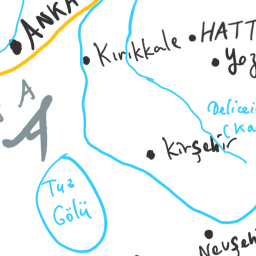 ANKA
Kırıkkale
HATT
Yoz
A
Delice
(Ka
Kirşehir
Tuz
Gölü
Nevşehi